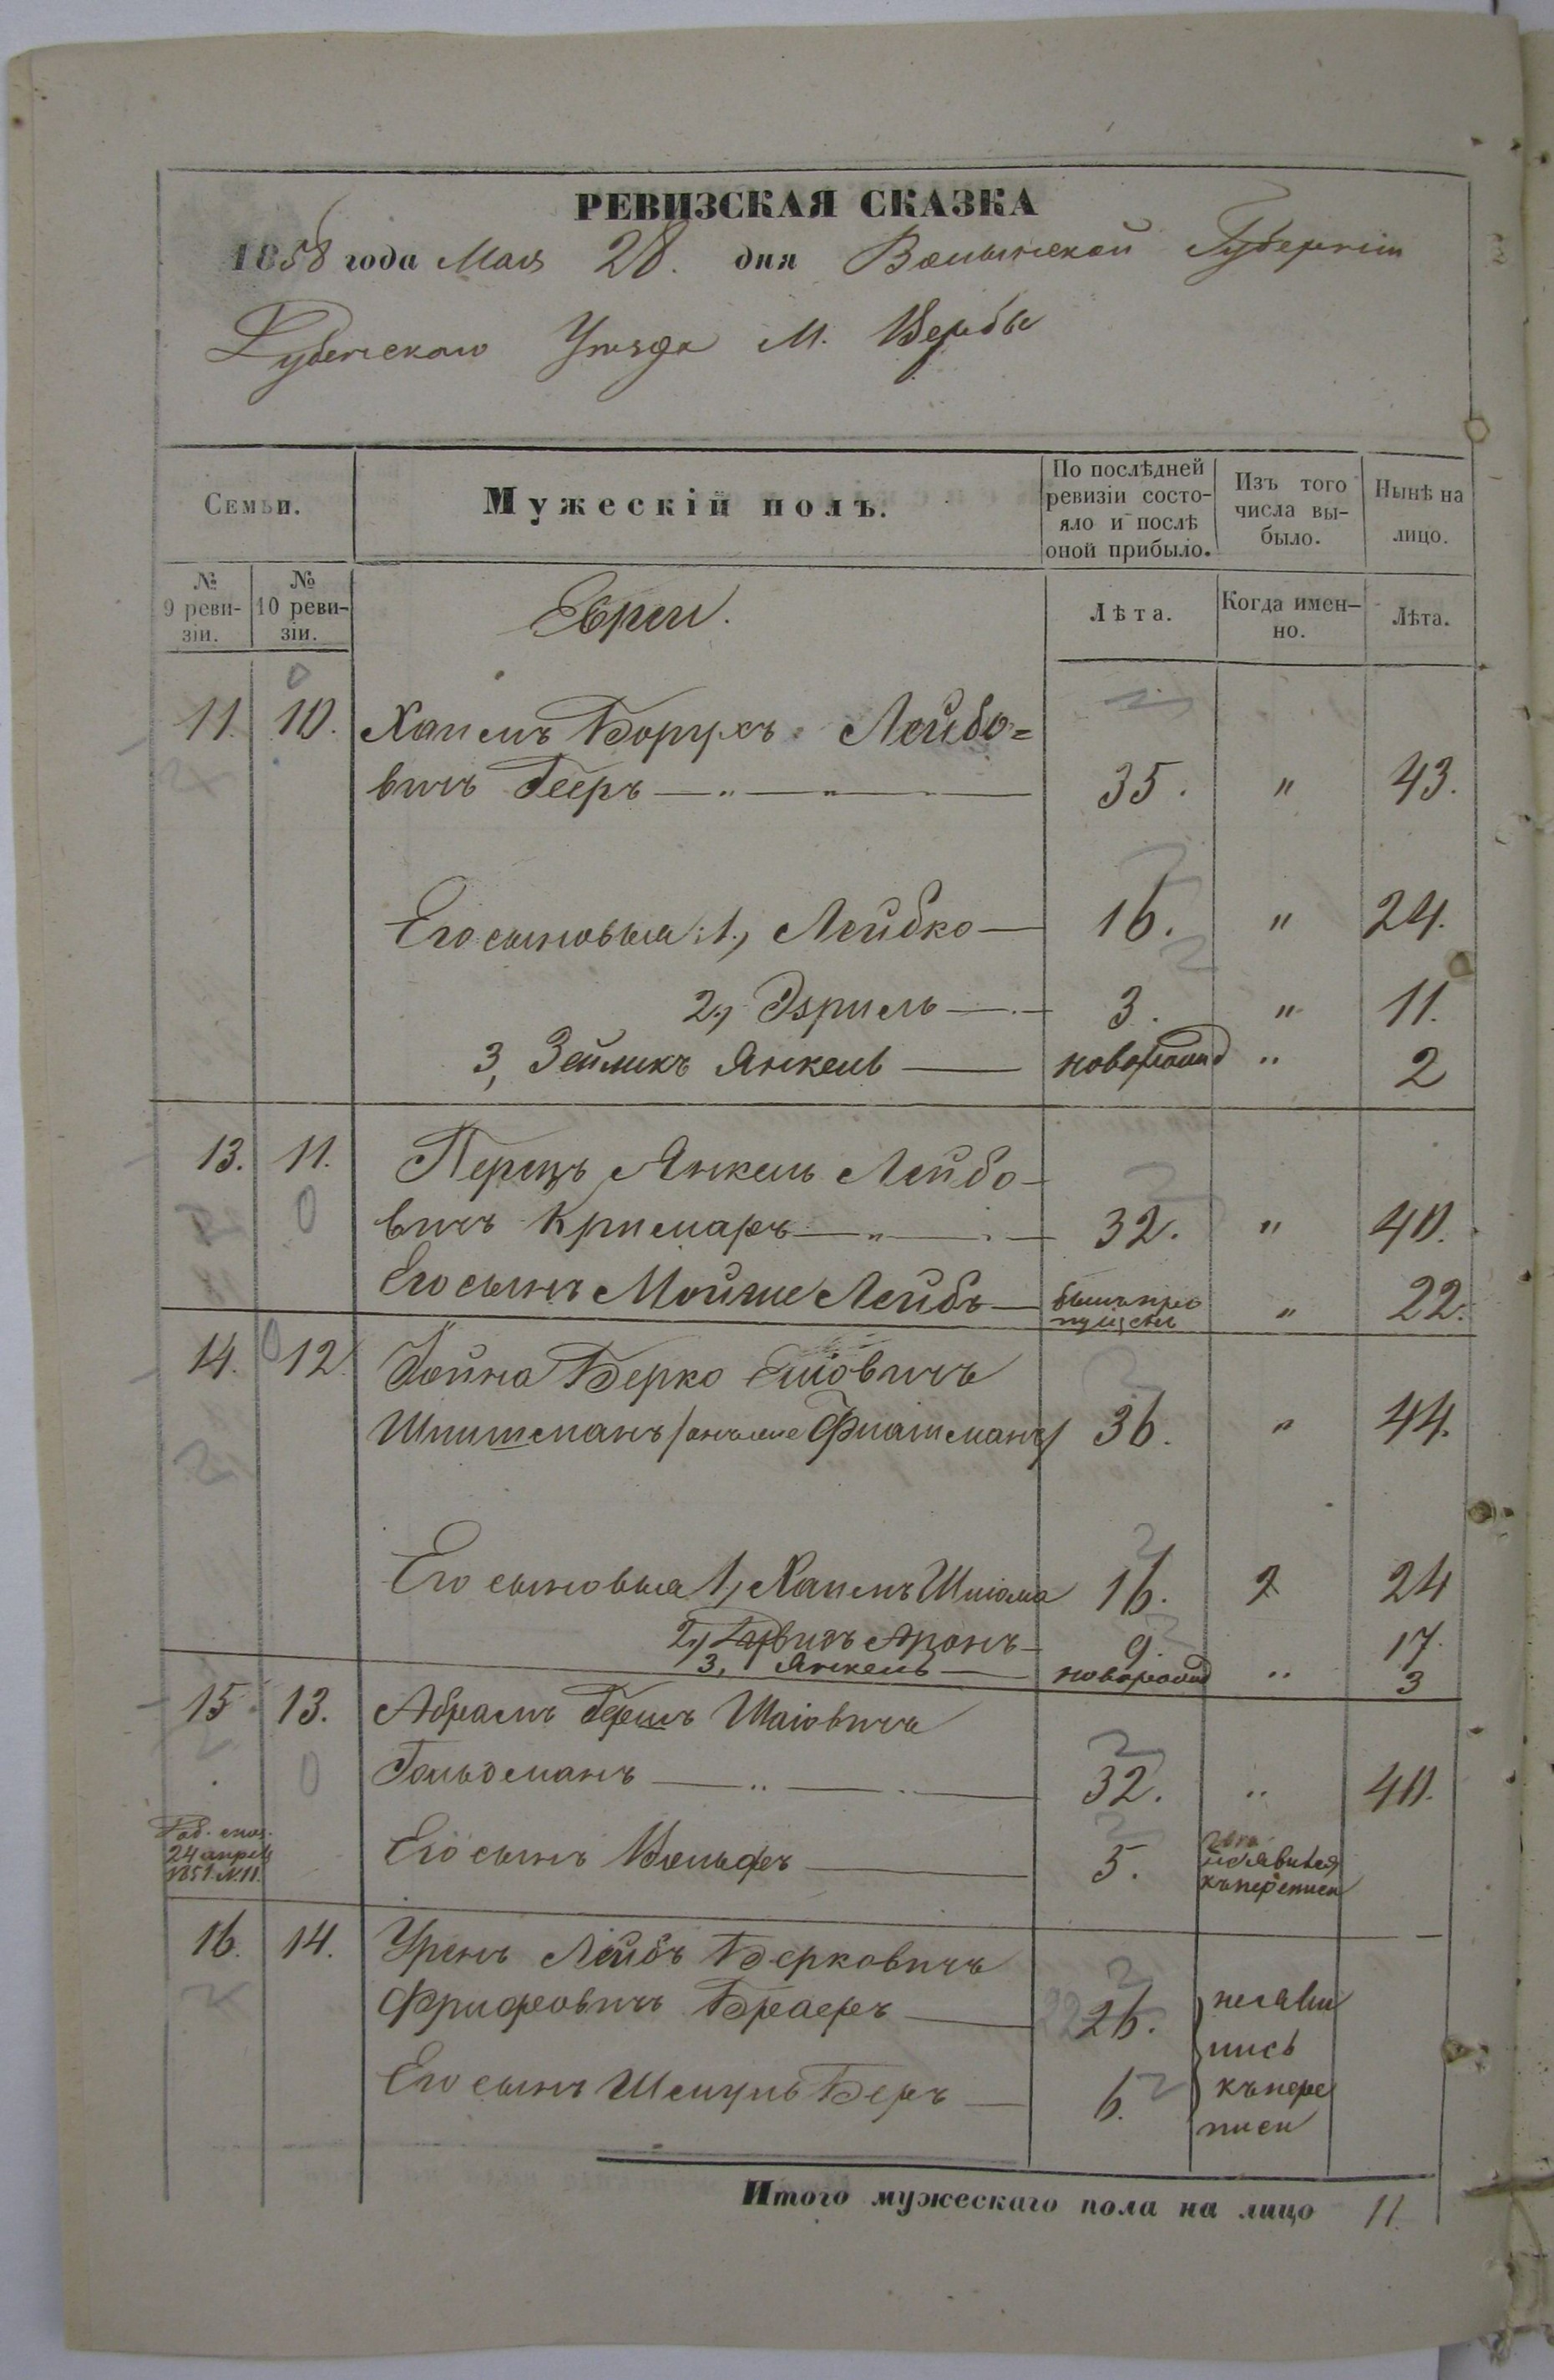 РЕВИЗСКАЯ СКАЗКА
1858 года Мая 28. дня Волынской Губерніи
Дубенскаго Уѣзда М. Вербы
Семьи.
Мужескій полъ.
По послѣдней ревизіи состояло и послѣ оной прибыло.
Изъ того числа выбыло.
Нынѣ на лицо.
№ 9 ревизіи.
№ 10 ревизіи.
Евреи.
Лѣта.
Когда именно.
Лѣта.
11. 10. Хаимъ Борухъ Лейбо=
вичъ Бееръ 35. " 43.
Его сыновья: 1., Лейбко 16. " 24.
2., Эзриель 3. " 11.
3, Зейликъ Янкель новорожд " 2
13. 11. Перецъ Янкель Лейбо-
вичъ Кримаръ 32. " 40.
Его сынъ Мойше Лейбъ былъ про
пущенъ " 22.
14. 12. Хойна Берко Еліовичъ
Шпитманъ /онъ же Фиашманъ/ 36. " 44.
Его сыновья 1, Хаимъ Шліома 16. 24
2., Давидъ Аронъ 9. 17.
3, Янкель новорожд " 3
15 13. Абрамъ Гершъ Шаіовичъ
Гольдманъ 32. " 40.
24 апрѣля
1851 №11.
Его сынъ Вольфъ 5.
неявился
къ переписи
16. 14. Уренъ Лейбъ Берковичъ
Фридровичъ Браеръ 26. неяви
лись
Его сынъ Шмуль Беръ 6. къ пере
писи
Итого мужескаго пола на лицо 11.